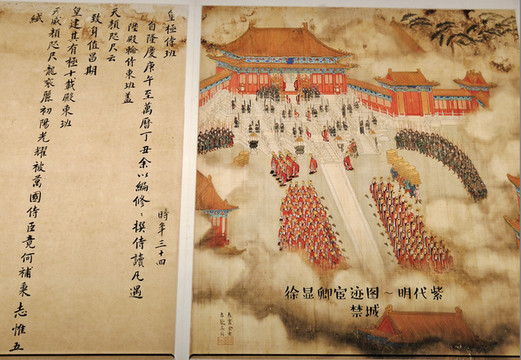 皇極侍班
時年三十四
自隆慶庚午至萬曆丁丑余以編修、撰侍讀凡遇
陛殿輪侍東班蓋
天顏咫尺云
致身值昌期
皇建其有極十載殿東班
天威顏咫尺龍袞麗初陽光耀被萬國侍臣竟何補秉志惟五
緎
徐显卿宦迹图～明代紫
禁城